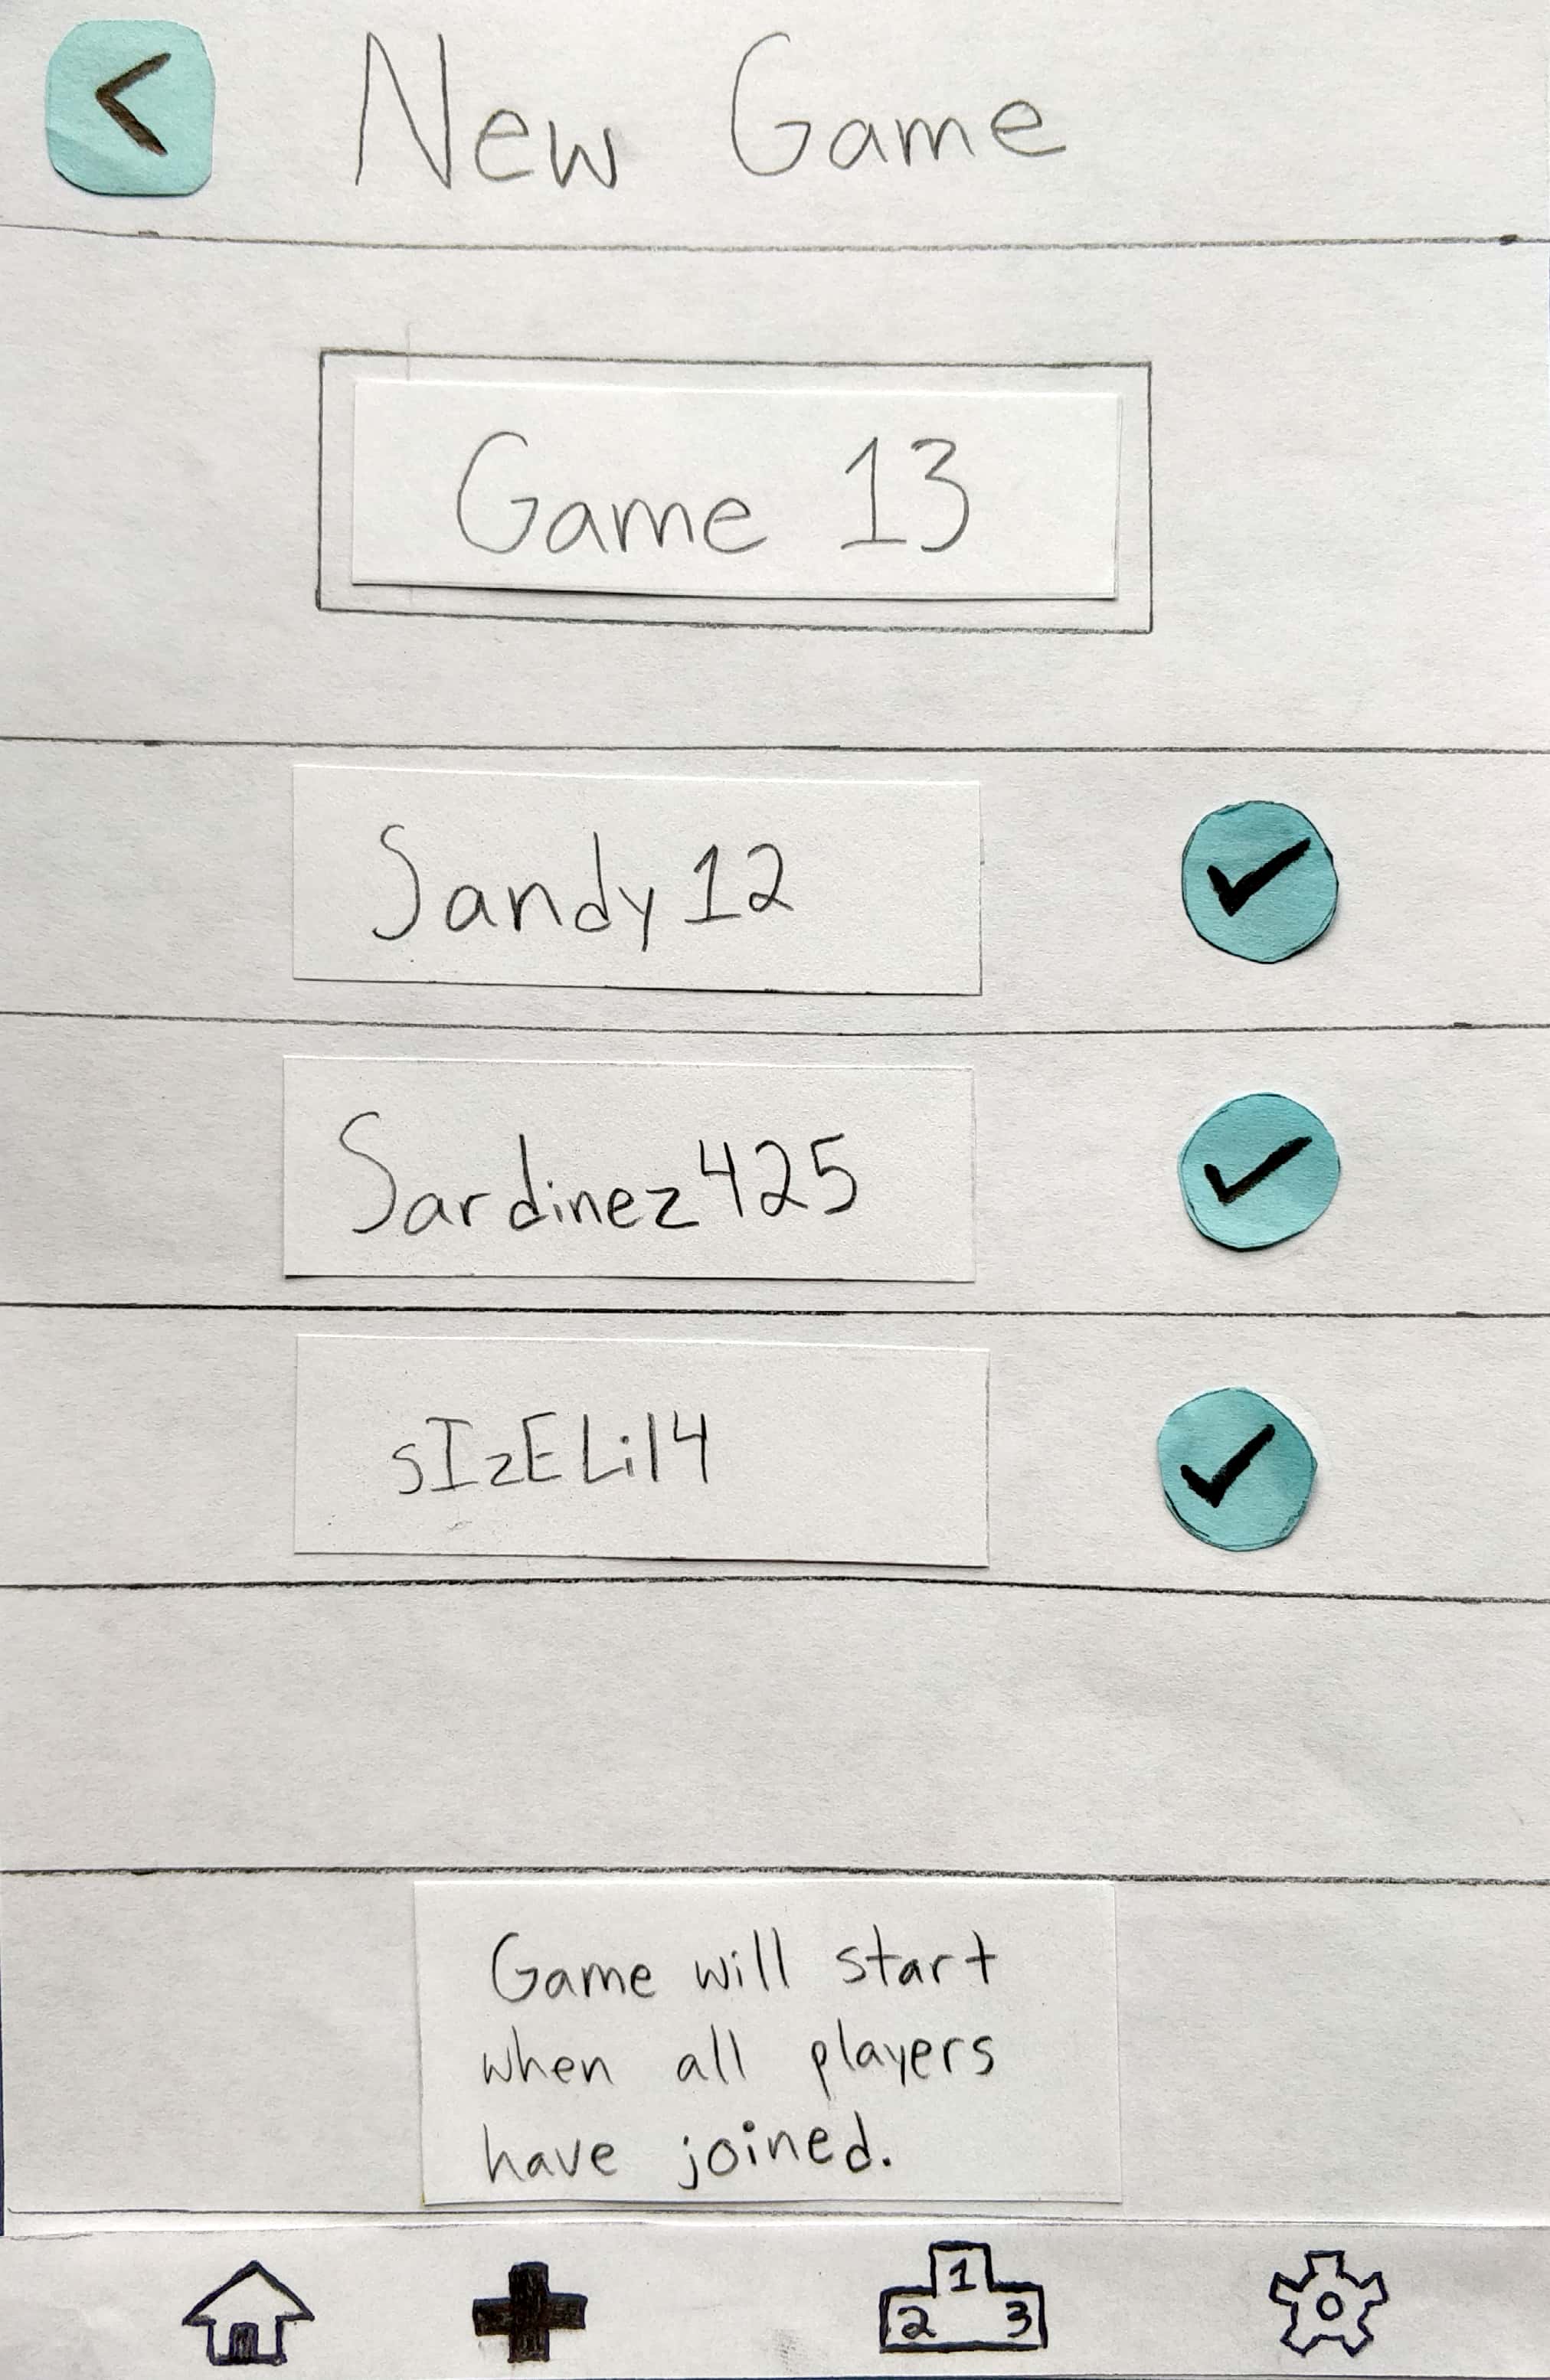 New Game
Game 13
Sandy12
Sardinez425
sIzELil4
Game will start
when all players
have joined.
1
2 3